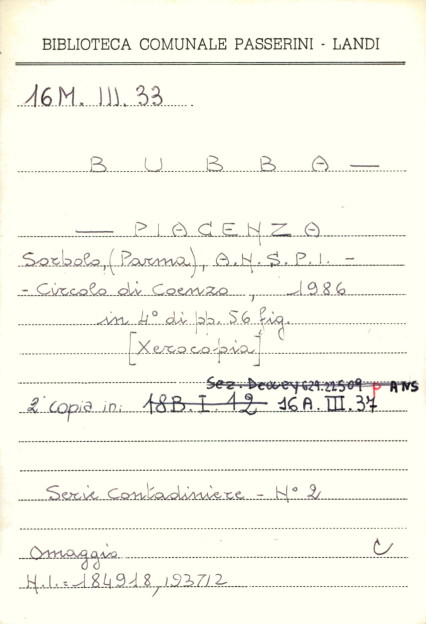 BIBLIOTECA COMUNALE PASSERINI - LANDI
16M. III. 33
B U B B A —
— PIACENZA
Sorbolo, (Parma), A.N.S.P.I. -
- Circolo di Coenzo, 1986
in 4° di pp. 56 fig.
[Xerocopia]
Sez. Dewey 629.22509 P ANS
2ª copia in: 18B. I. 12 16A. III. 37
Serie Contadiniere - N° 2
Omaggio C
N.I.: 184918, 193712